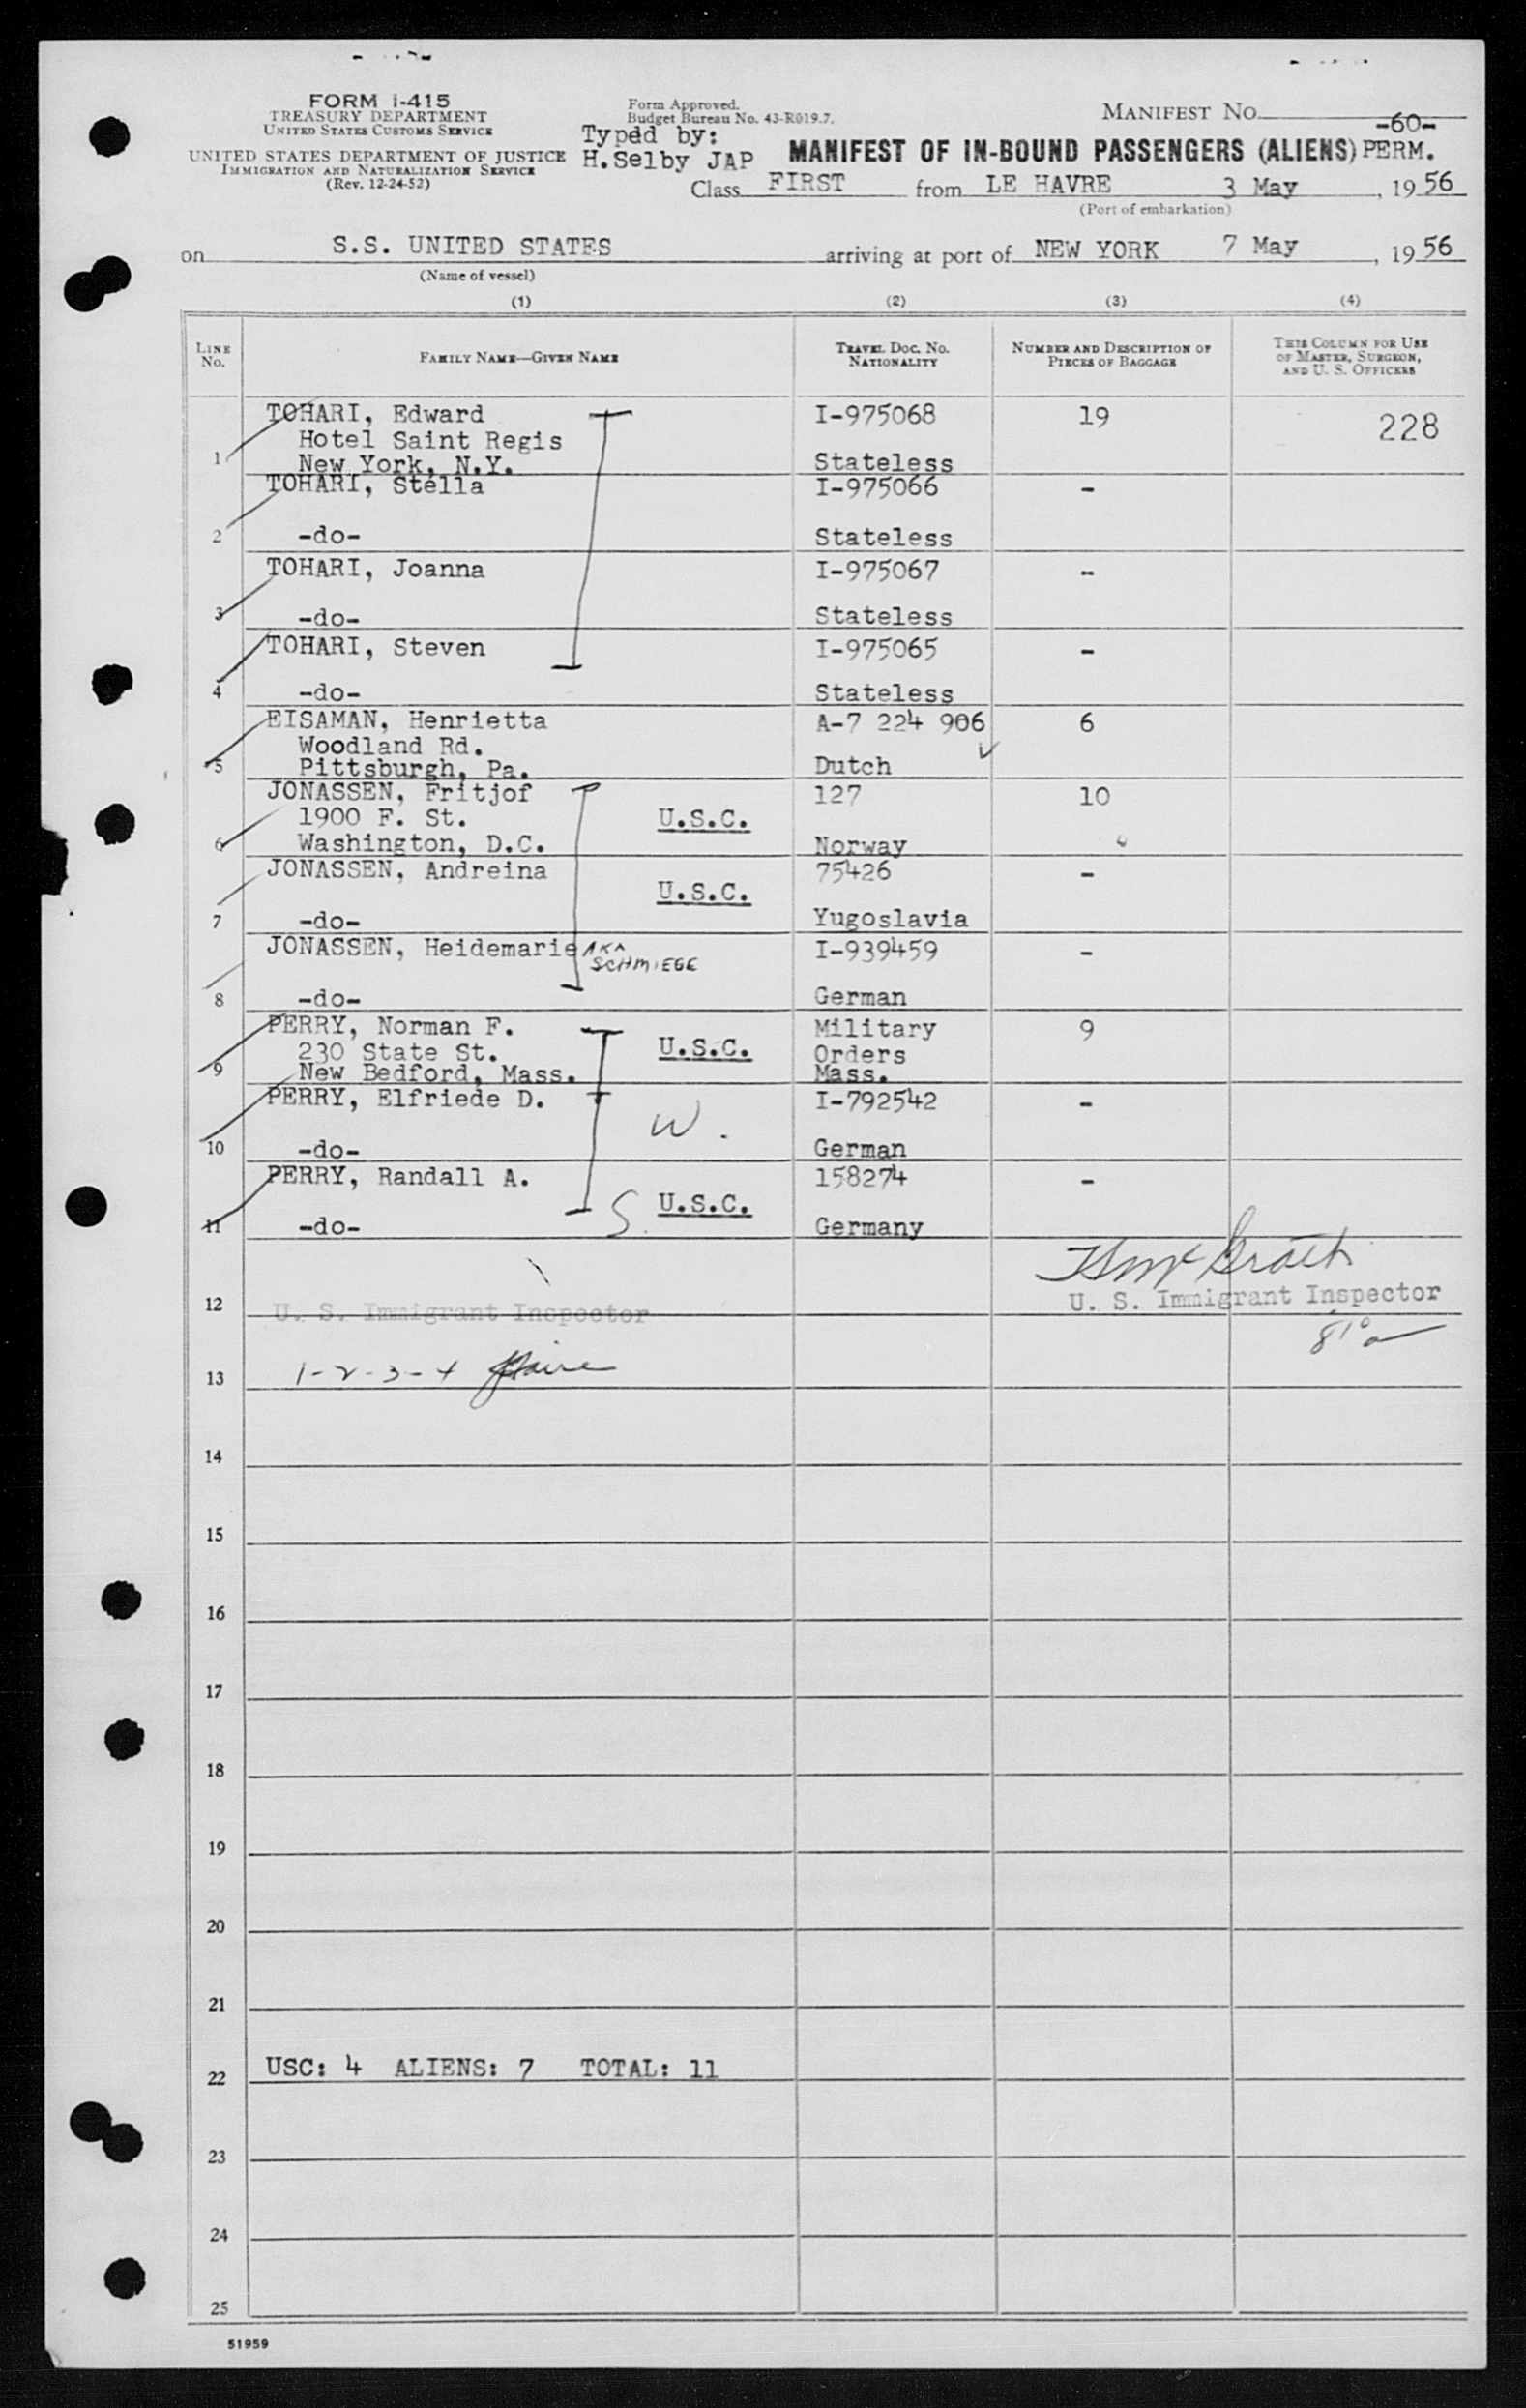 FORM I-415
TREASURY DEPARTMENT
UNITED STATES CUSTOMS SERVICE
UNITED STATES DEPARTMENT OF JUSTICE
IMMIGRATION AND NATURALIZATION SERVICE
(Rev. 12-24-52)
Form Approved.
Budget Bureau No. 43-R019.7.
Typed by:
H.Selby JAP
MANIFEST NO. -60-
MANIFEST OF IN-BOUND PASSENGERS (ALIENS) PERM.
Class FIRST from LE HAVRE 3 May, 1956
(Port of embarkation)
on S.S. UNITED STATES arriving at port of NEW YORK 7 May, 1956
(Name of vessel)
(1) (2) (3) (4)
LINE No. FAMILY NAME—GIVEN NAME TRAVEL DOC. NO. NATIONALITY NUMBER AND DESCRIPTION OF PIECES OF BAGGAGE THIS COLUMN FOR USE OF MASTER, SURGEON, AND U. S. OFFICERS
TOHARI, Edward I-975068 19 228
Hotel Saint Regis
1 New York, N.Y. Stateless
TOHARI, Stella I-975066 -
2 -do- Stateless
TOHARI, Joanna I-975067 -
3 -do- Stateless
TOHARI, Steven I-975065 -
4 -do- Stateless
EISAMAN, Henrietta A-7 224 906 6
Woodland Rd.
5 Pittsburgh, Pa. Dutch
JONASSEN, Fritjof 127 10
1900 F. St. U.S.C.
6 Washington, D.C. Norway
JONASSEN, Andreina 75426 -
U.S.C.
7 -do- Yugoslavia
JONASSEN, Heidemarie AKA I-939459 -
SCHMIEGE
8 -do- German
PERRY, Norman F. Military 9
230 State St. U.S.C. Orders
9 New Bedford, Mass. Mass.
PERRY, Elfriede D. I-792542 -
W.
10 -do- German
PERRY, Randall A. 158274 -
S. U.S.C.
11 -do- Germany
12 U. S. Immigrant Inspector U. S. Immigrant Inspector
13 1-2-3-4
14
15
16
17
18
19
20
21
22 USC: 4 ALIENS: 7 TOTAL: 11
23
24
25
51959